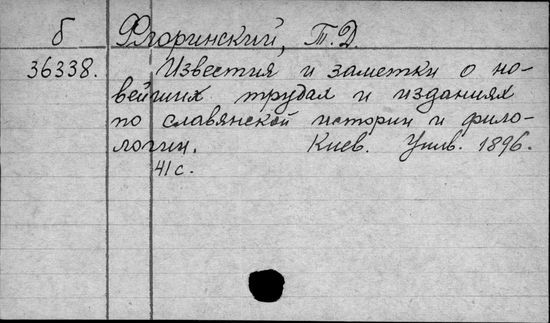 б Флоринский, Т.Д.
36338. Известия и заметки о но-
вейших трудах и изданиях
по славянской истории и фило-
логии. Киев. Унив. 1896.
41 с.